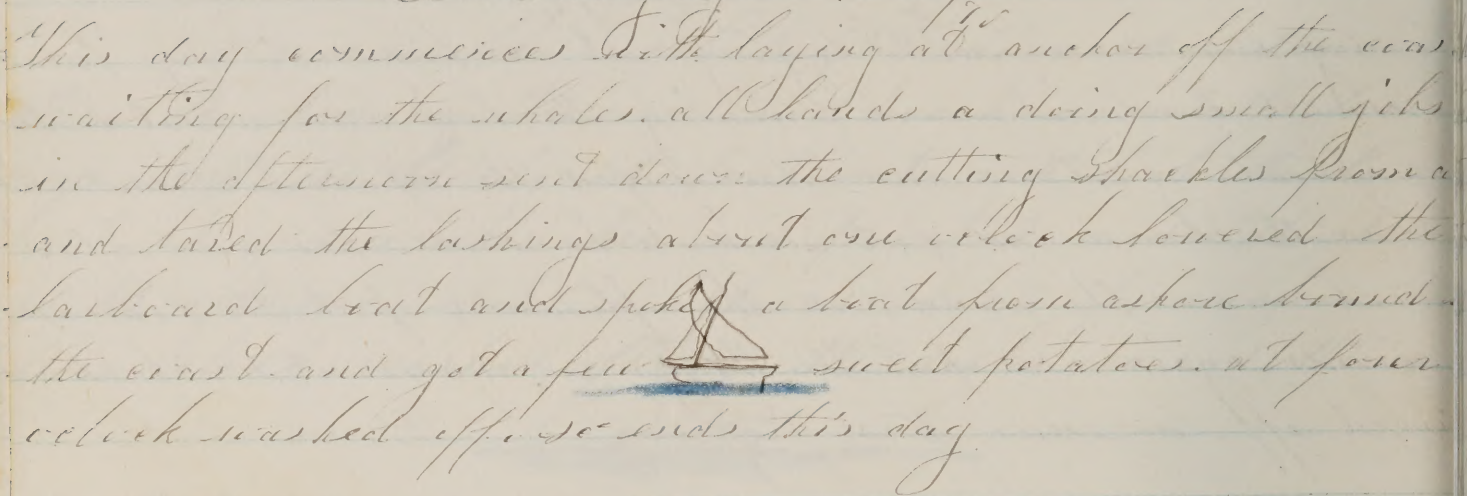 This day commences with laying at anchor off the coas
waiting for the whales. all hands a doing small jobs
in the afternoon sent down the cutting shackles from a
and tared the lashings about one oclock lowered the
larboard boat and spoke a boat from ashore bound
the coast and got a few sweet potatoes. at four
oclock washed off. so ends this day